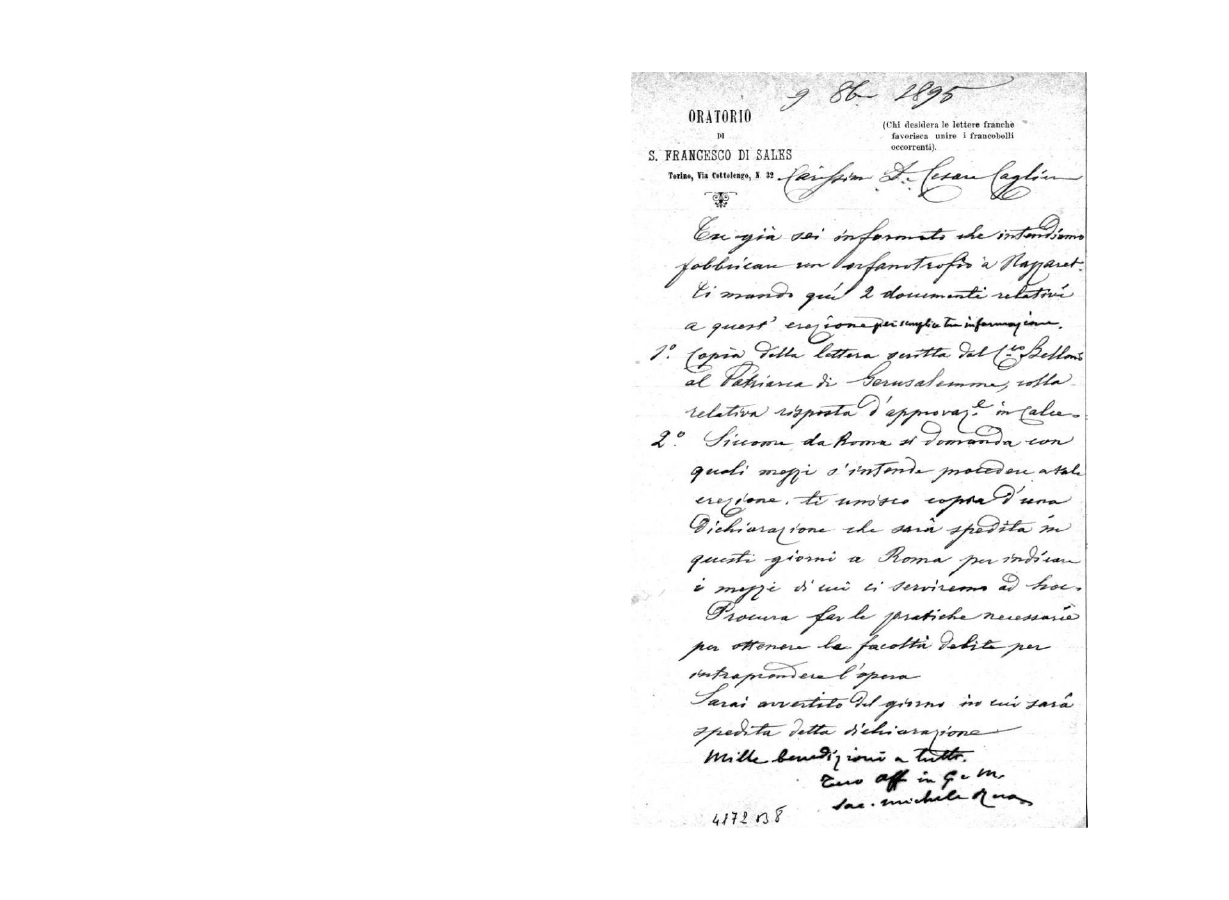 9 8b 1895
ORATORIO
DI
S. FRANCESCO DI SALES
Torino, Via Cottolengo, N. 32
(Chi desidera le lettere franche
favorisca unire i francobolli
occorrenti).
Carissim D. Cesare Cagliero
Tu già sei informato che intendiamo
fabbricare un orfanotrofio a Nazzaret.
Ti mando qui 2 documenti relativi
a quest' erezione per semplice tua informazione.
1.° Copia della lettera scritta dal C.co Belloni
al Patriarca di Gerusalemme, colla
relativa risposta d'approvaz.e in calce.
2.° Siccome da Roma si domanda con
quali mezzi s'intende procedere a tale
erezione, ti unisco copia d'una
Dichiarazione che sarà spedita in
questi giorni a Roma per indicare
i mezzi di cui ci serviremo ad hoc.
Procura far le pratiche necessarie
per ottenere le facoltà debite per
intraprendere l'opera
Sarai avvertito del giorno in cui sarà
spedita detta dichiarazione
Mille benedizioni a tutti.
Tuo aff in G e M.
Sac. Michele Rua
4172 B 8